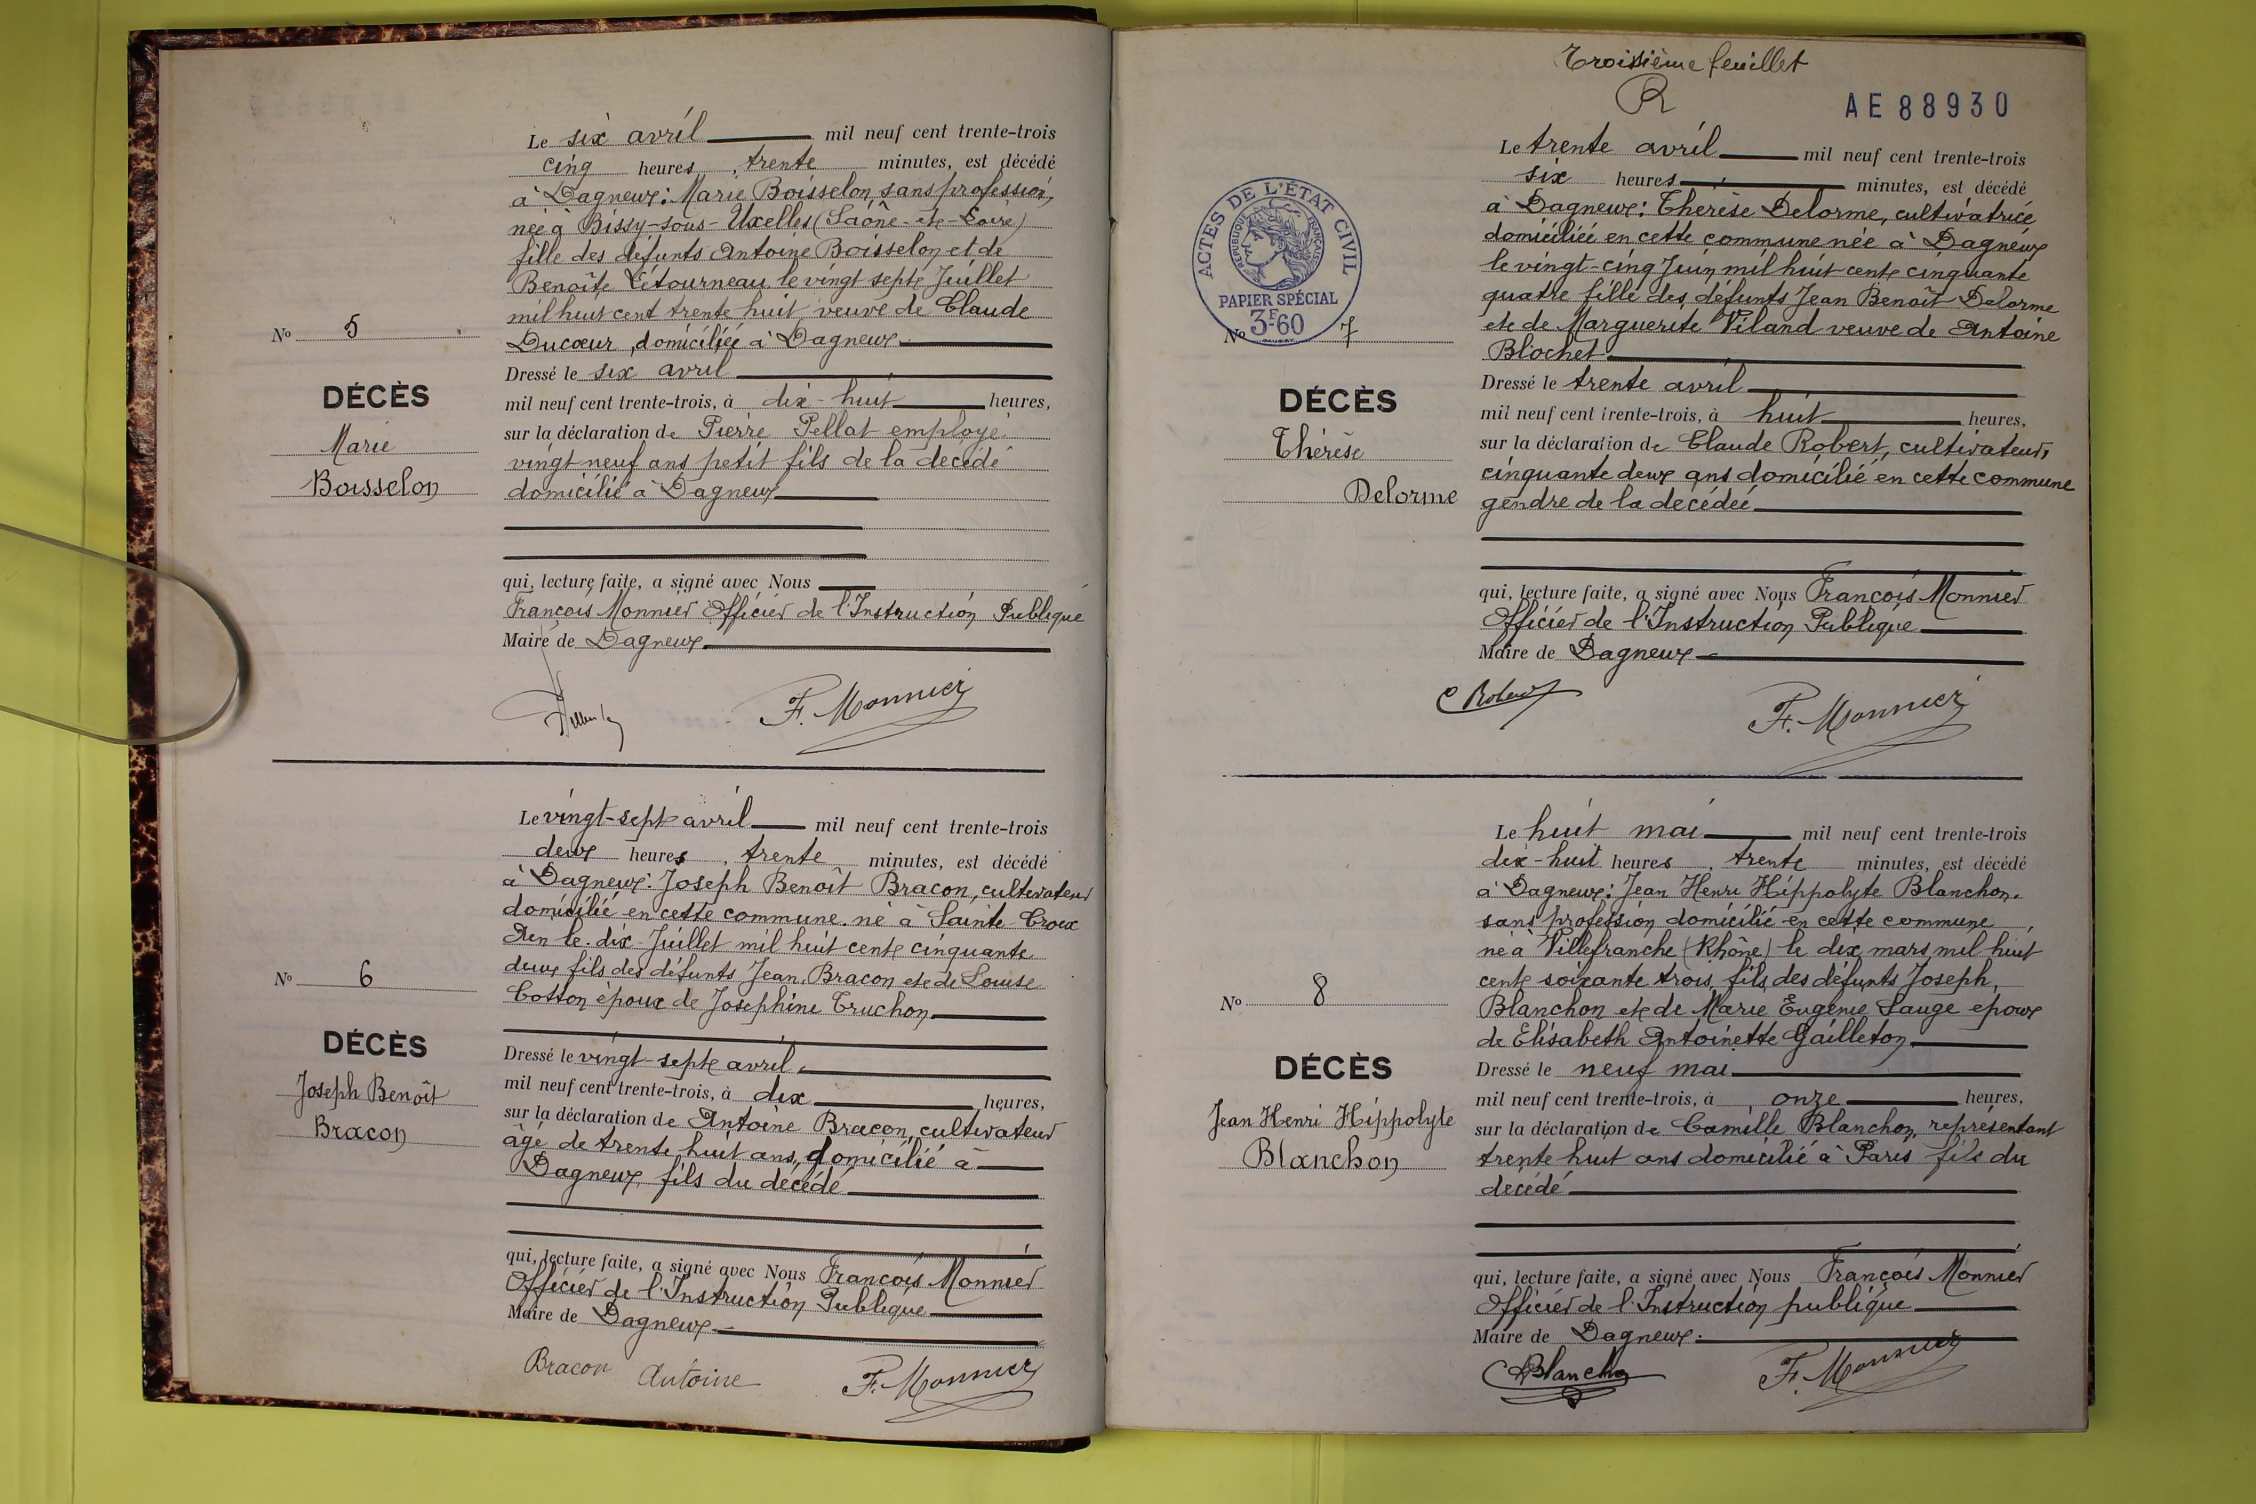 Le six avril mil neuf cent trente-trois
cinq heures, trente minutes, est décédé
à Dagneux: Marie Boisselon, sans profession,
née à Bissy-sous-Uxelles (Saône-et-Loire)
fille des défunts Antoine Boisselon et de
Benoîte Létourneau le vingt sept Juillet
mil huit cent trente huit, veuve de Claude
Ducœur, domiciliée à Dagneux
No 5
DÉCÈS
Marie
Boisselon
Dressé le six avril
mil neuf cent trente-trois, à dix-huit heures,
sur la déclaration de Pierre Pellat employé
vingt neuf ans petit fils de la décédé
domicilié à Dagneux
qui, lecture faite, a signé avec Nous
François Monnier Officier de l'Instruction Publique
Maire de Dagneux
F. Monnier
Le vingt-sept avril mil neuf cent trente-trois
deux heures, trente minutes, est décédé
à Dagneux: Joseph Benoît Bracon, cultivateur
domicilié en cette commune. né à Sainte Croix
Ain le dix Juillet mil huit cent cinquante
deux fils des défunts Jean Bracon et de Louise
Cotton époux de Josephine Truchon
No 6
DÉCÈS
Joseph Benoît
Bracon
Dressé le vingt-sept avril
mil neuf cent trente-trois, à dix heures,
sur la déclaration de Antoine Bracon, cultivateur
âgé de trente huit ans, domicilié à
Dagneux, fils du décédé
qui, lecture faite, a signé avec Nous François Monnier
Officier de l'Instruction Publique
Maire de Dagneux
Bracon Antoine F. Monnier
Troisième feuillet
R
AE 88930
Le trente avril mil neuf cent trente-trois
six heures minutes, est décédé
à Dagneux: Thérèse Delorme, cultivatrice
domiciliée en cette commune née à Dagneux
le vingt-cinq Juin mil huit cent cinquante
quatre fille des défunts Jean Benoît Delorme
et de Marguerite Viland veuve de Antoine
Blochet
ACTES DE L'ÉTAT CIVIL
RÉPUBLIQUE FRANÇAISE
PAPIER SPÉCIAL
3F60
No 7
DÉCÈS
Thérèse
Delorme
Dressé le trente avril
mil neuf cent trente-trois, à huit heures,
sur la déclaration de Claude Robert, cultivateur,
cinquante deux ans domicilié en cette commune
gendre de la décédée
qui, lecture faite, a signé avec Nous François Monnier
Officier de l'Instruction Publique
Maire de Dagneux
C Robert F. Monnier
Le huit mai mil neuf cent trente-trois
dix-huit heures, trente minutes, est décédé
à Dagneux: Jean Henri Hippolyte Blanchon.
sans profession domicilié en cette commune,
né à Villefranche (Rhône) le dix mars mil huit
cent soixante trois, fils des défunts Joseph,
Blanchon et de Marie Eugénie Sauge epoux
de Elisabeth Antoinette Gailleton
No 8
DÉCÈS
Jean Henri Hippolyte
Blanchon
Dressé le neuf mai
mil neuf cent trente-trois, à onze heures,
sur la déclaration de Camille Blanchon, représentant
trente huit ans domicilié à Paris fils du
décédé
qui, lecture faite, a signé avec Nous François Monnier
Officier de l'Instruction publique
Maire de Dagneux.
C Blanchon F. Monnier